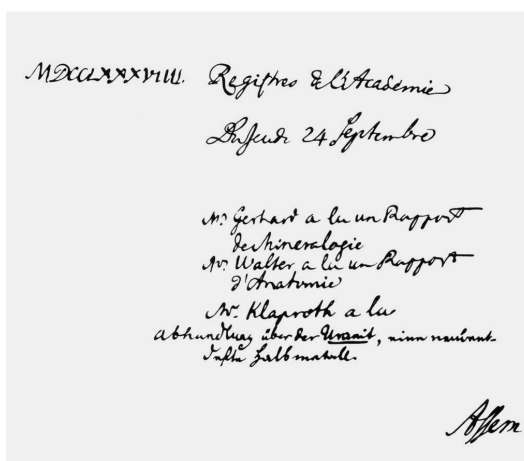 MDCCLXXXVIIII. Registres de l'Académie
Du Jeudi 24 Septembre
Mr. Gerhard a lu un Rapport
de Mineralogie
Mr. Walter a lu un Rapport
d'Anatomie
Mr. Klaproth a lu
Abhandlung über der Uranit, einen neuent-
deckte halbmetall.